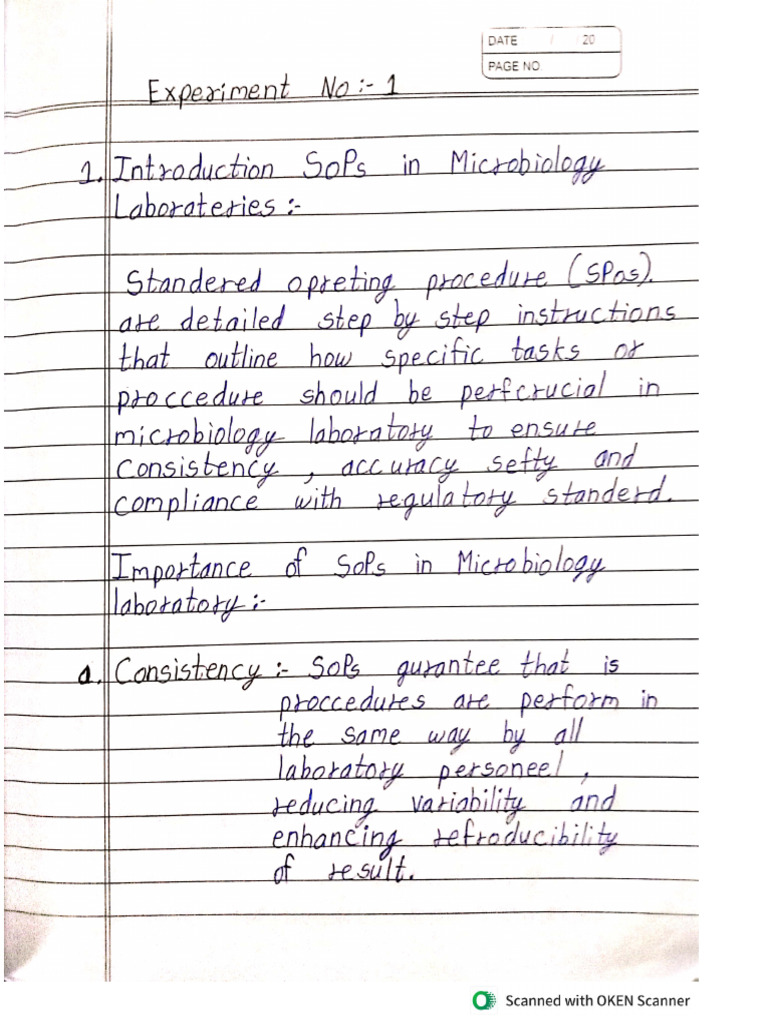 DATE / / 20
PAGE NO.
Experiment No :- 1
1. Introduction SOPs in Microbiology
Laborateries :-
Standered opreting procedure (SPOs).
are detailed step by step instructions
that outline how specific tasks or
proccedure should be perfcrucial in
microbiology laboratory to ensure
Consistency , accuracy sefty and
compliance with regulatory standerd.
Importance of SOPs in Microbiology
laboratory :-
a. Consistency :- SOPs gurantee that is
proccedures are perform in
the same way by all
laboratory personeel ,
reducing variability and
enhancing refroducibility
of result.
Scanned with OKEN Scanner